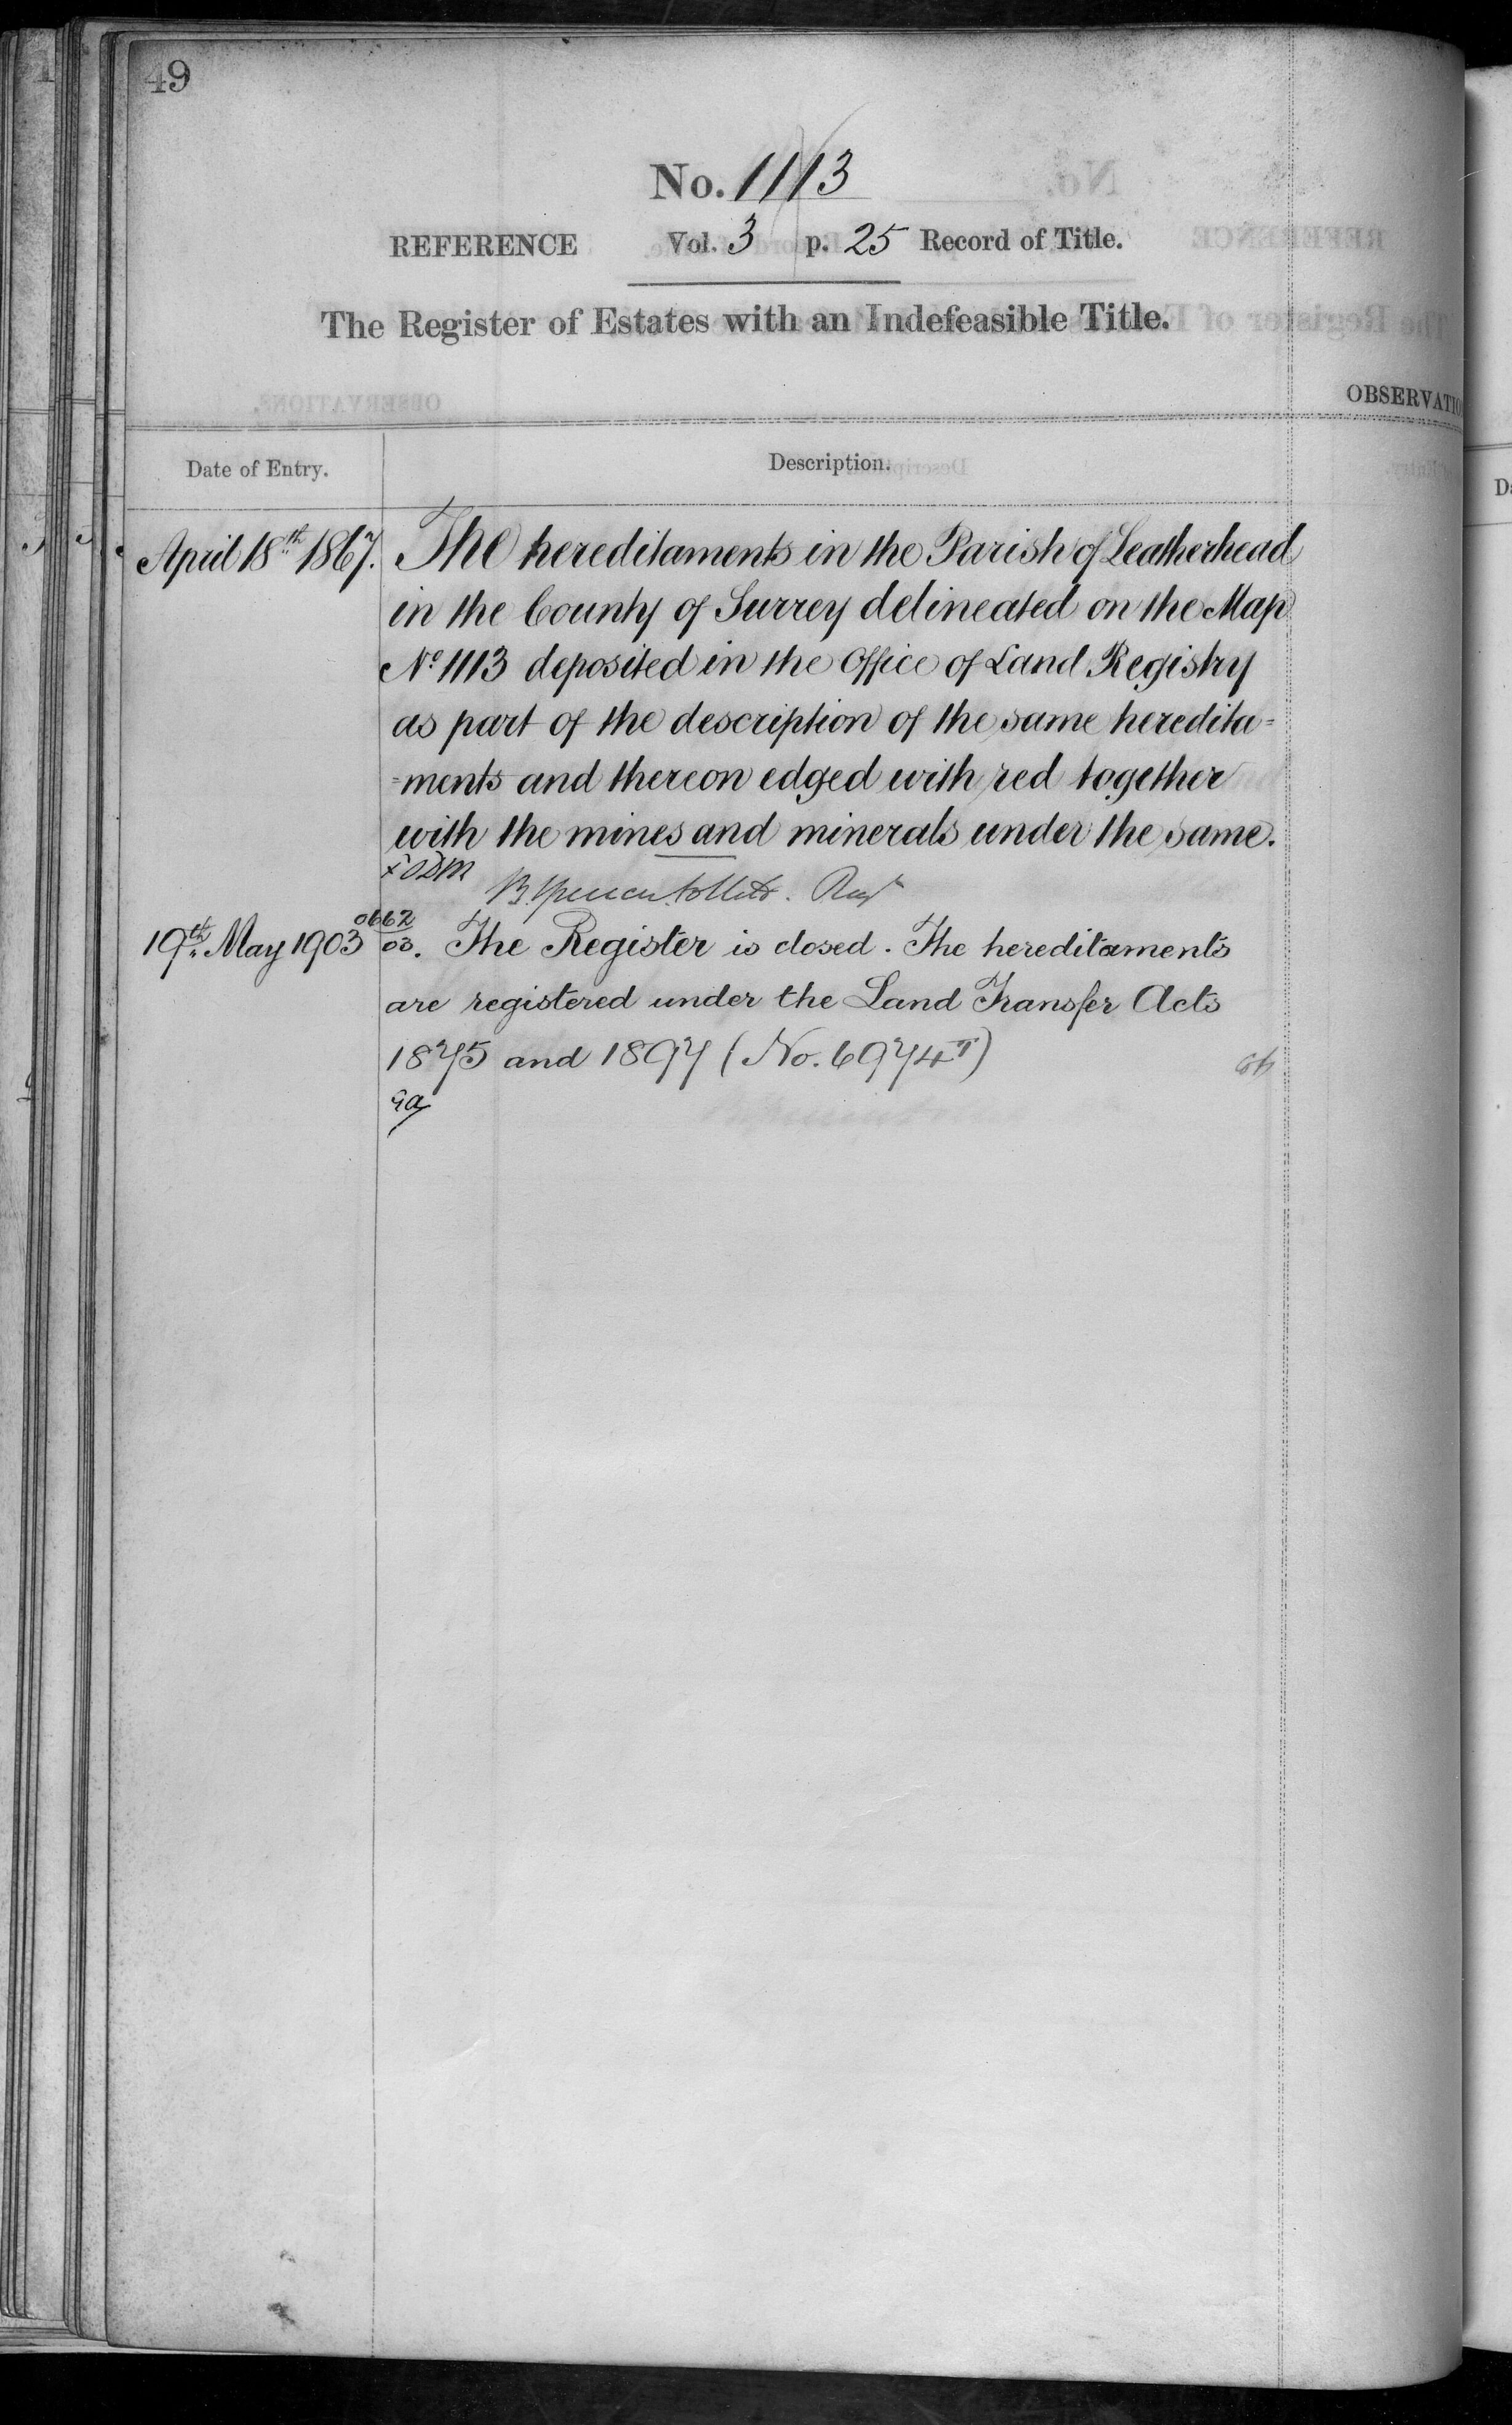 49
No. 1113
REFERENCE Vol. 3 p. 25 Record of Title.
The Register of Estates with an Indefeasible Title.
OBSERVATIO
Date of Entry. Description.
April 18th 1867. The hereditaments in the Parish of Leatherhead
in the County of Surrey delineated on the Map
No 1113 deposited in the Office of Land Registry
as part of the description of the same heredita=
=ments and thereon edged with red together
with the mines and minerals under the same.
19th May 1903 0662/03. The Register is closed. The hereditaments
are registered under the Land Transfer Acts
1875 and 1897 (No. 6974T)